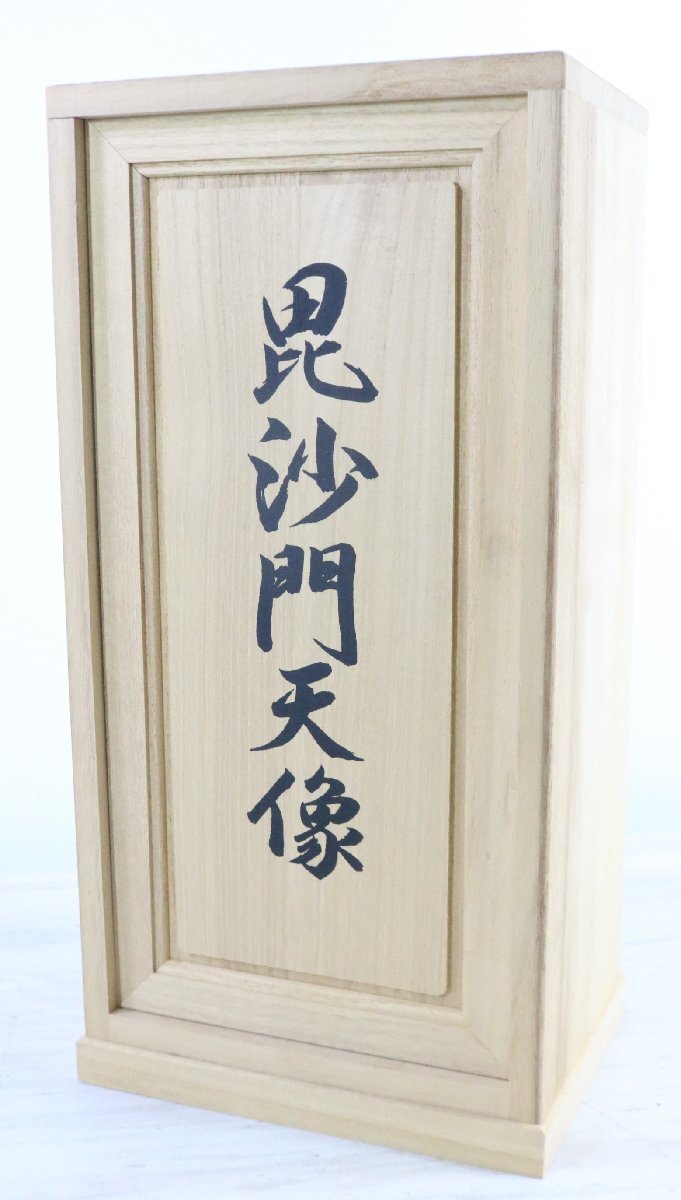 毘沙門天像